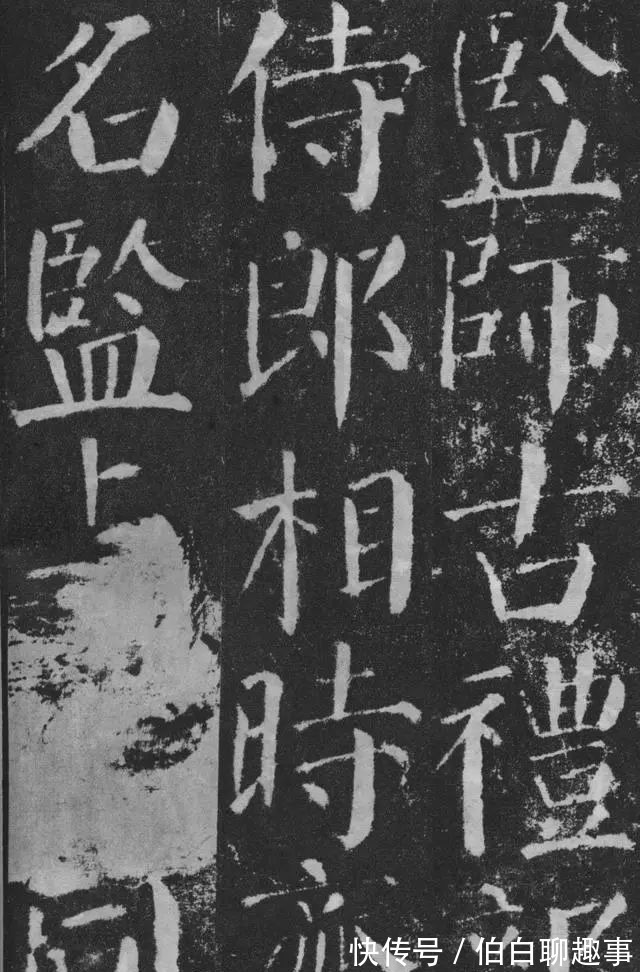 監師古禮
侍郎相時
名監
快传号 / 伯白聊趣事